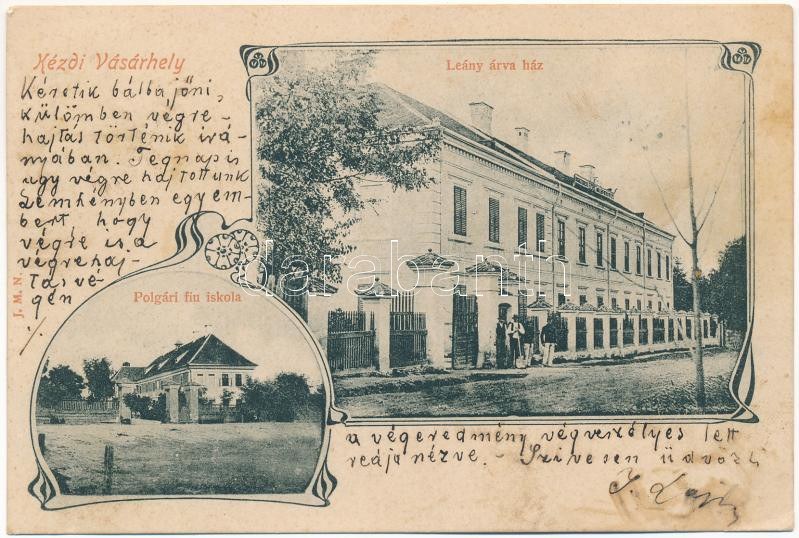 Kézdi Vásárhely
Leány árva ház
Kéretik bálba jőni,
külömben végre-
hajtás történik irá-
nyában. Tegnap is
ugy végre hajtottunk
Lemhényben egy em-
bert, hogy
végre is a
végrehaj-
tás vé-
gén
Polgári fiu iskola
J. M. N.
darabanth
a végeredmény végveszélyes lett
reája nézve. - Szivesen üdvözli